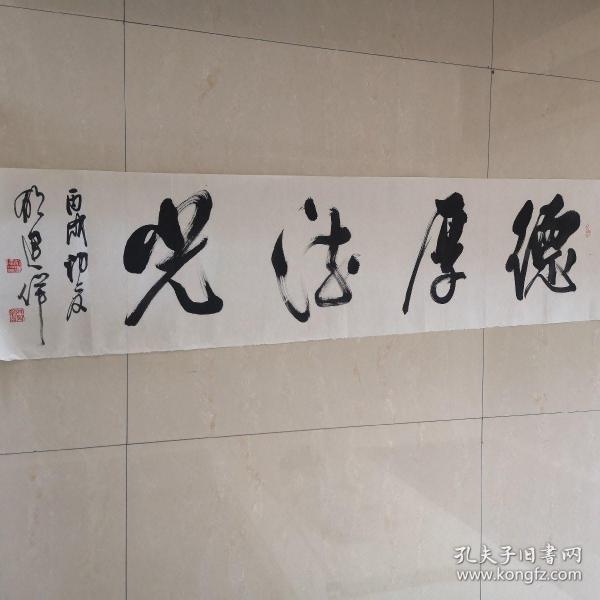 德厚流光
丙戌初夏
孔夫子旧书网
www.kongfz.com